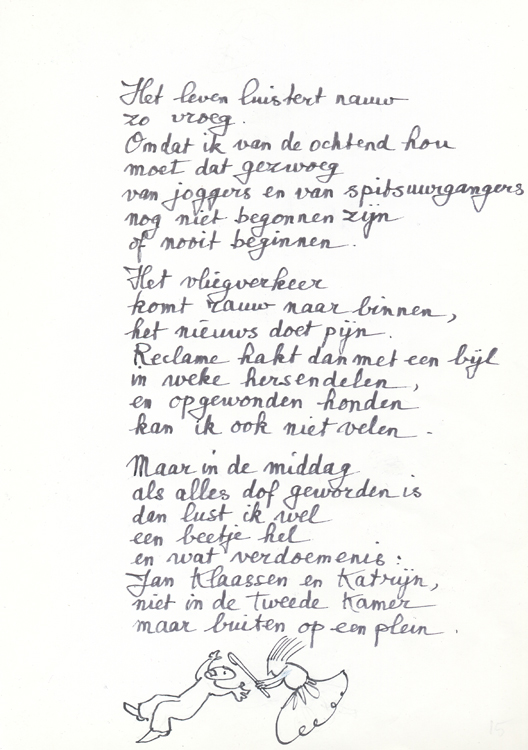 Het leven luistert nauw
zo vroeg.
Omdat ik van de ochtend hou
moet dat gezwoeg
van joggers en van spitsuurgangers
nog niet begonnen zijn
of nooit beginnen.
Het vliegverkeer
komt rauw naar binnen,
het nieuws doet pijn.
Reclame hakt dan met een bijl
in weke hersendelen,
en opgewonden honden
kan ik ook niet velen.
Maar in de middag
als alles dof geworden is
dan lust ik wel
een beetje hel
en wat verdoemenis:
Jan Klaassen en Katrijn,
niet in de Tweede Kamer
maar buiten op een plein.
15